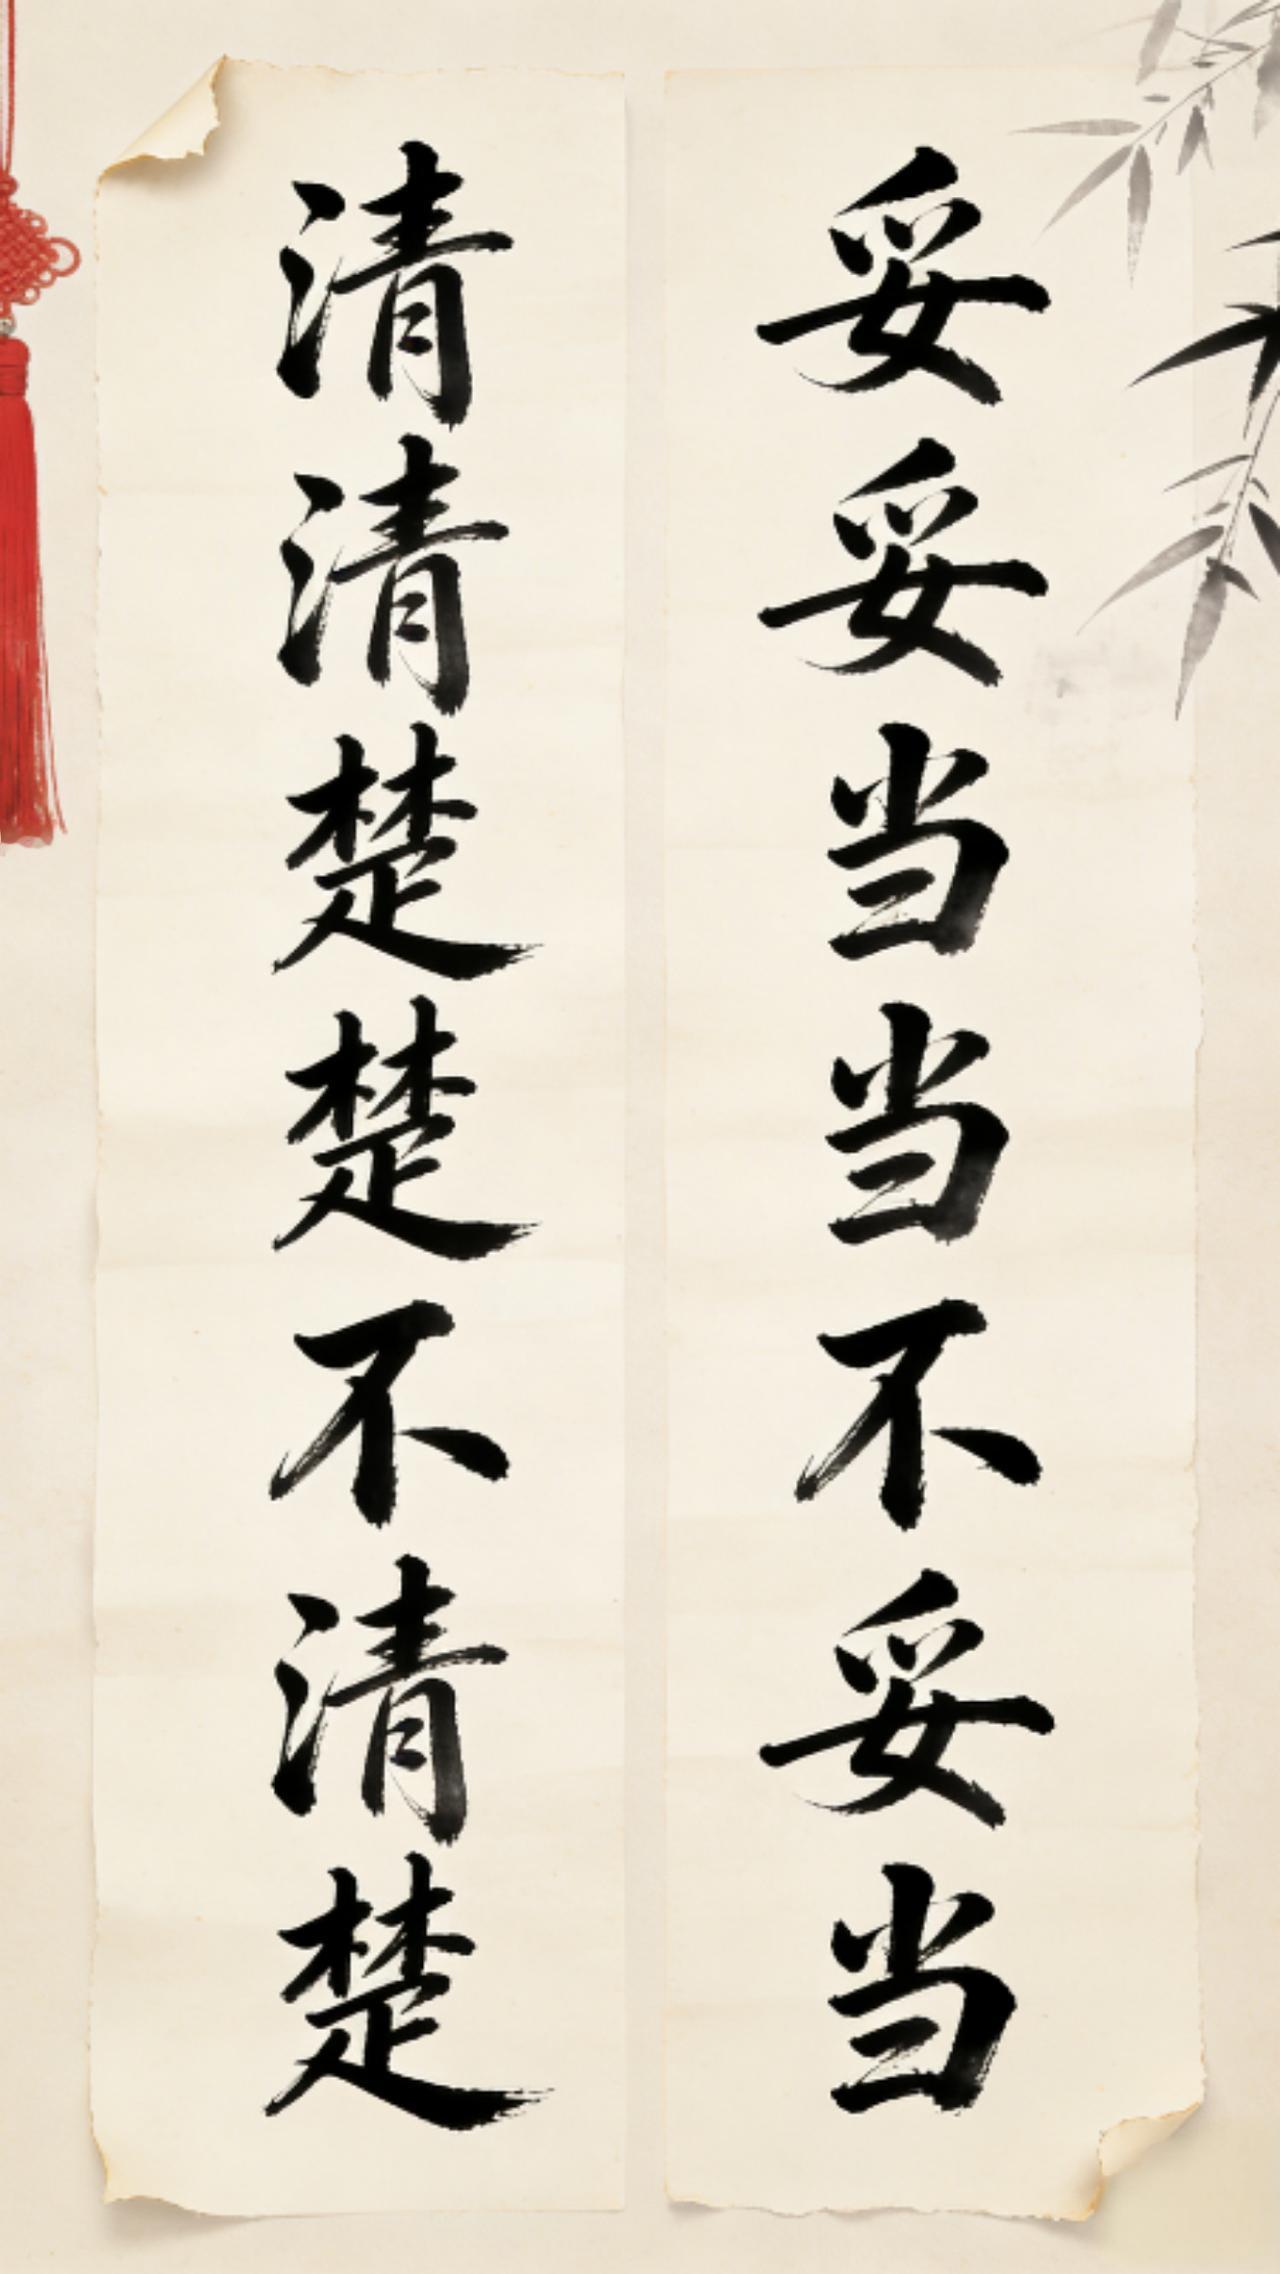 妥妥当当不妥当
清清楚楚不清楚